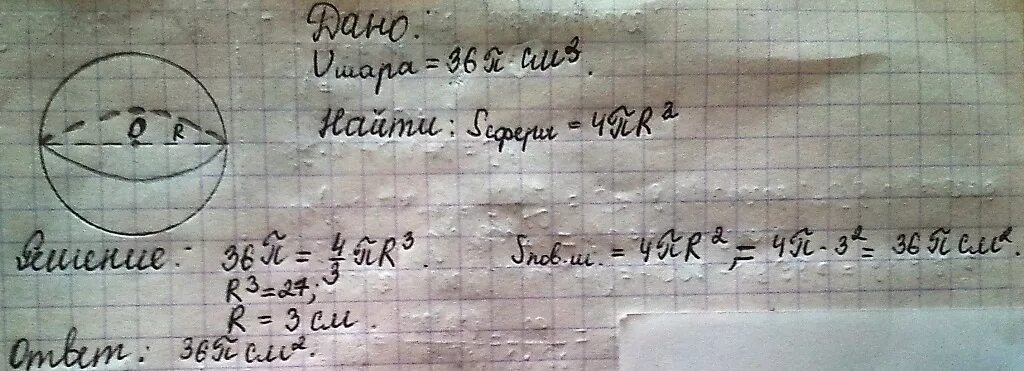 Дано:
Vшара = 36π см³.
O R
Найти: Sсферы = 4πR²
Решение: 36π = 4/3 πR³.
R³ = 27;
R = 3 см.
Sпов.ш. = 4πR² = 4π · 3² = 36π см².
Ответ: 36π см².